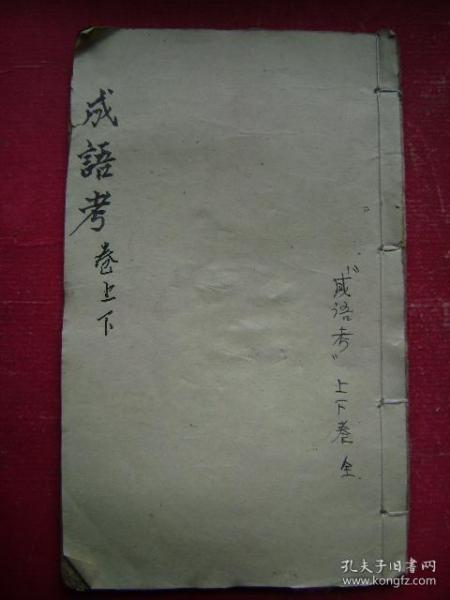 成語考 卷上下
“成语考”上下卷 全
孔夫子旧书网
www.kongfz.com